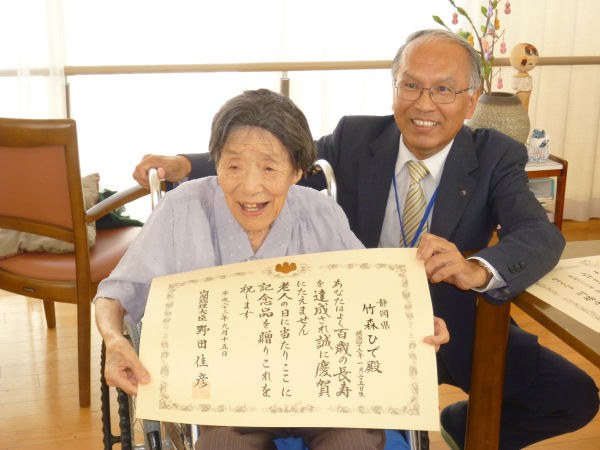 静岡県
竹森ひで殿
明治四十五年一月二十五日生
あなたはよく百歳の長寿
を達成され誠に慶賀
にたえません
老人の日に当たりここに
記念品を贈りこれを
祝します
平成二十三年九月十五日
内閣総理大臣 野田佳彦